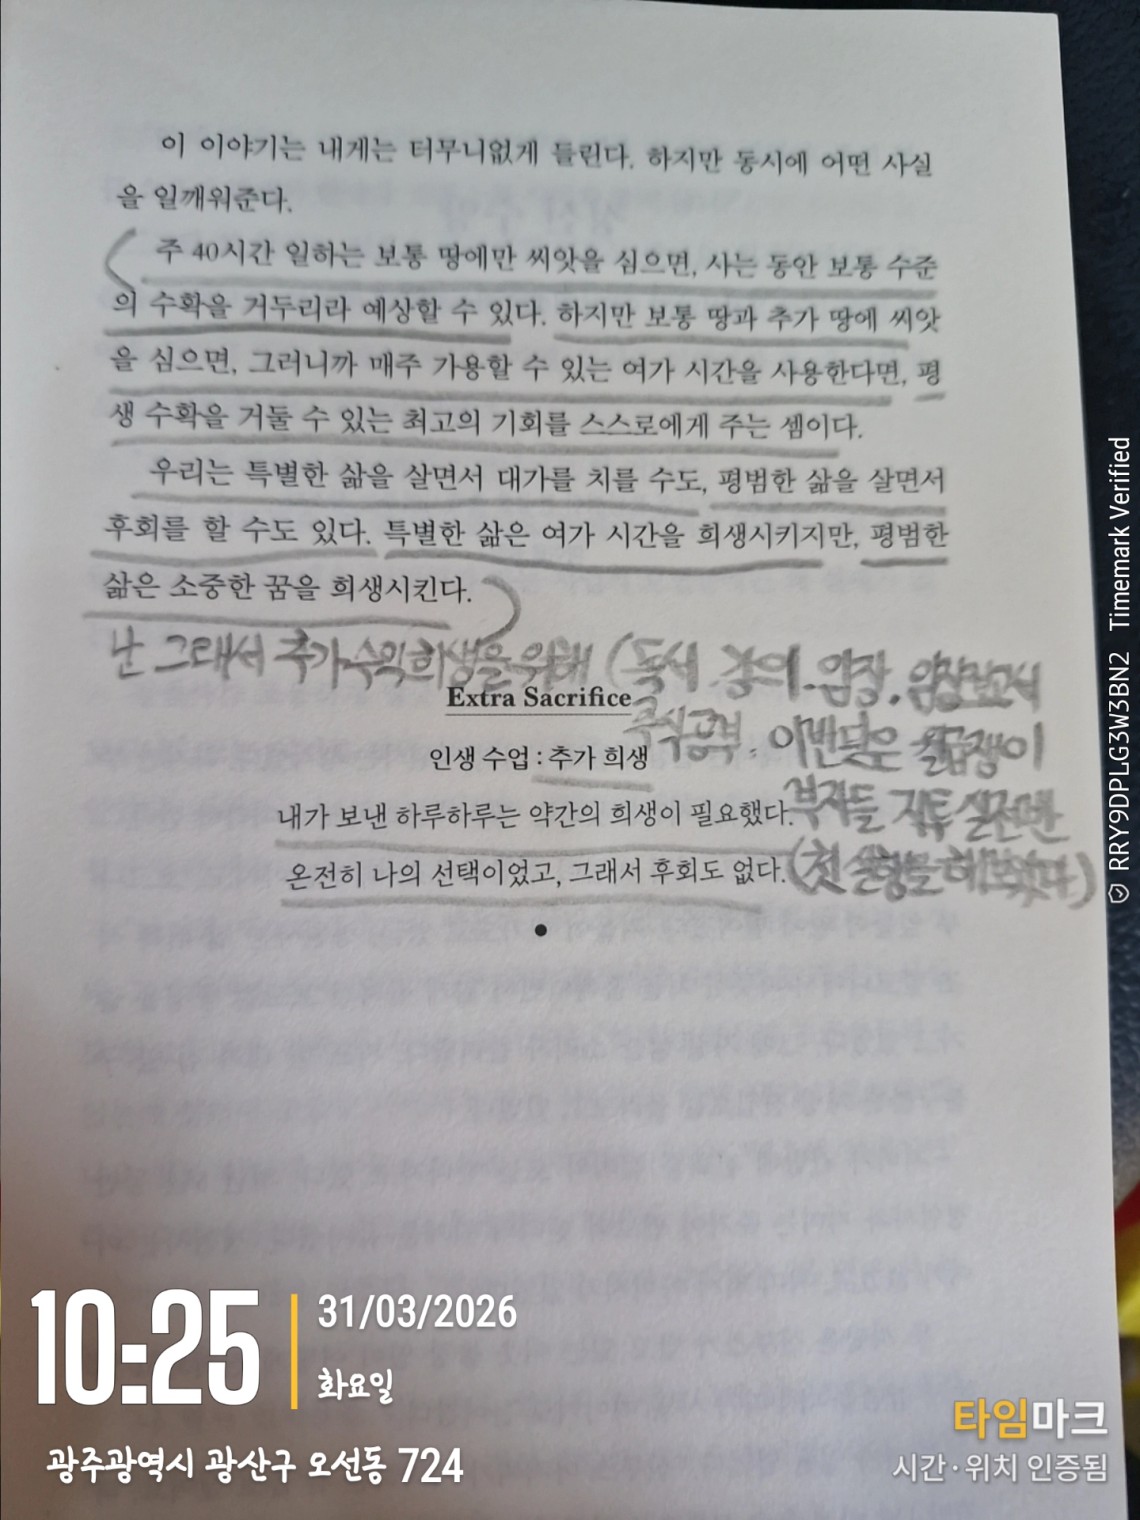 이 이야기는 내게는 터무니없게 들린다. 하지만 동시에 어떤 사실
을 일깨워준다.
주 40시간 일하는 보통 땅에만 씨앗을 심으면, 사는 동안 보통 수준
의 수확을 거두리라 예상할 수 있다. 하지만 보통 땅과 추가 땅에 씨앗
을 심으면, 그러니까 매주 가용할 수 있는 여가 시간을 사용한다면, 평
생 수확을 거둘 수 있는 최고의 기회를 스스로에게 주는 셈이다.
우리는 특별한 삶을 살면서 대가를 치를 수도, 평범한 삶을 살면서
후회를 할 수도 있다. 특별한 삶은 여가 시간을 희생시키지만, 평범한
삶은 소중한 꿈을 희생시킨다.
난 그래서 추가수익희생을 위해 (독서 강의.임장.임장보고서
Extra Sacrifice
주식공부. 이번달은 월급쟁이
인생 수업 : 추가 희생
부자들 직투 실전반
내가 보낸 하루하루는 약간의 희생이 필요했다.
온전히 나의 선택이었고, 그래서 후회도 없다.
(첫 실행을 해보았다.)
10:25
31/03/2026
화요일
광주광역시 광산구 오선동 724
타임마크
시간·위치 인증됨
RRY9DPLG3W3BN2 Timemark Verified